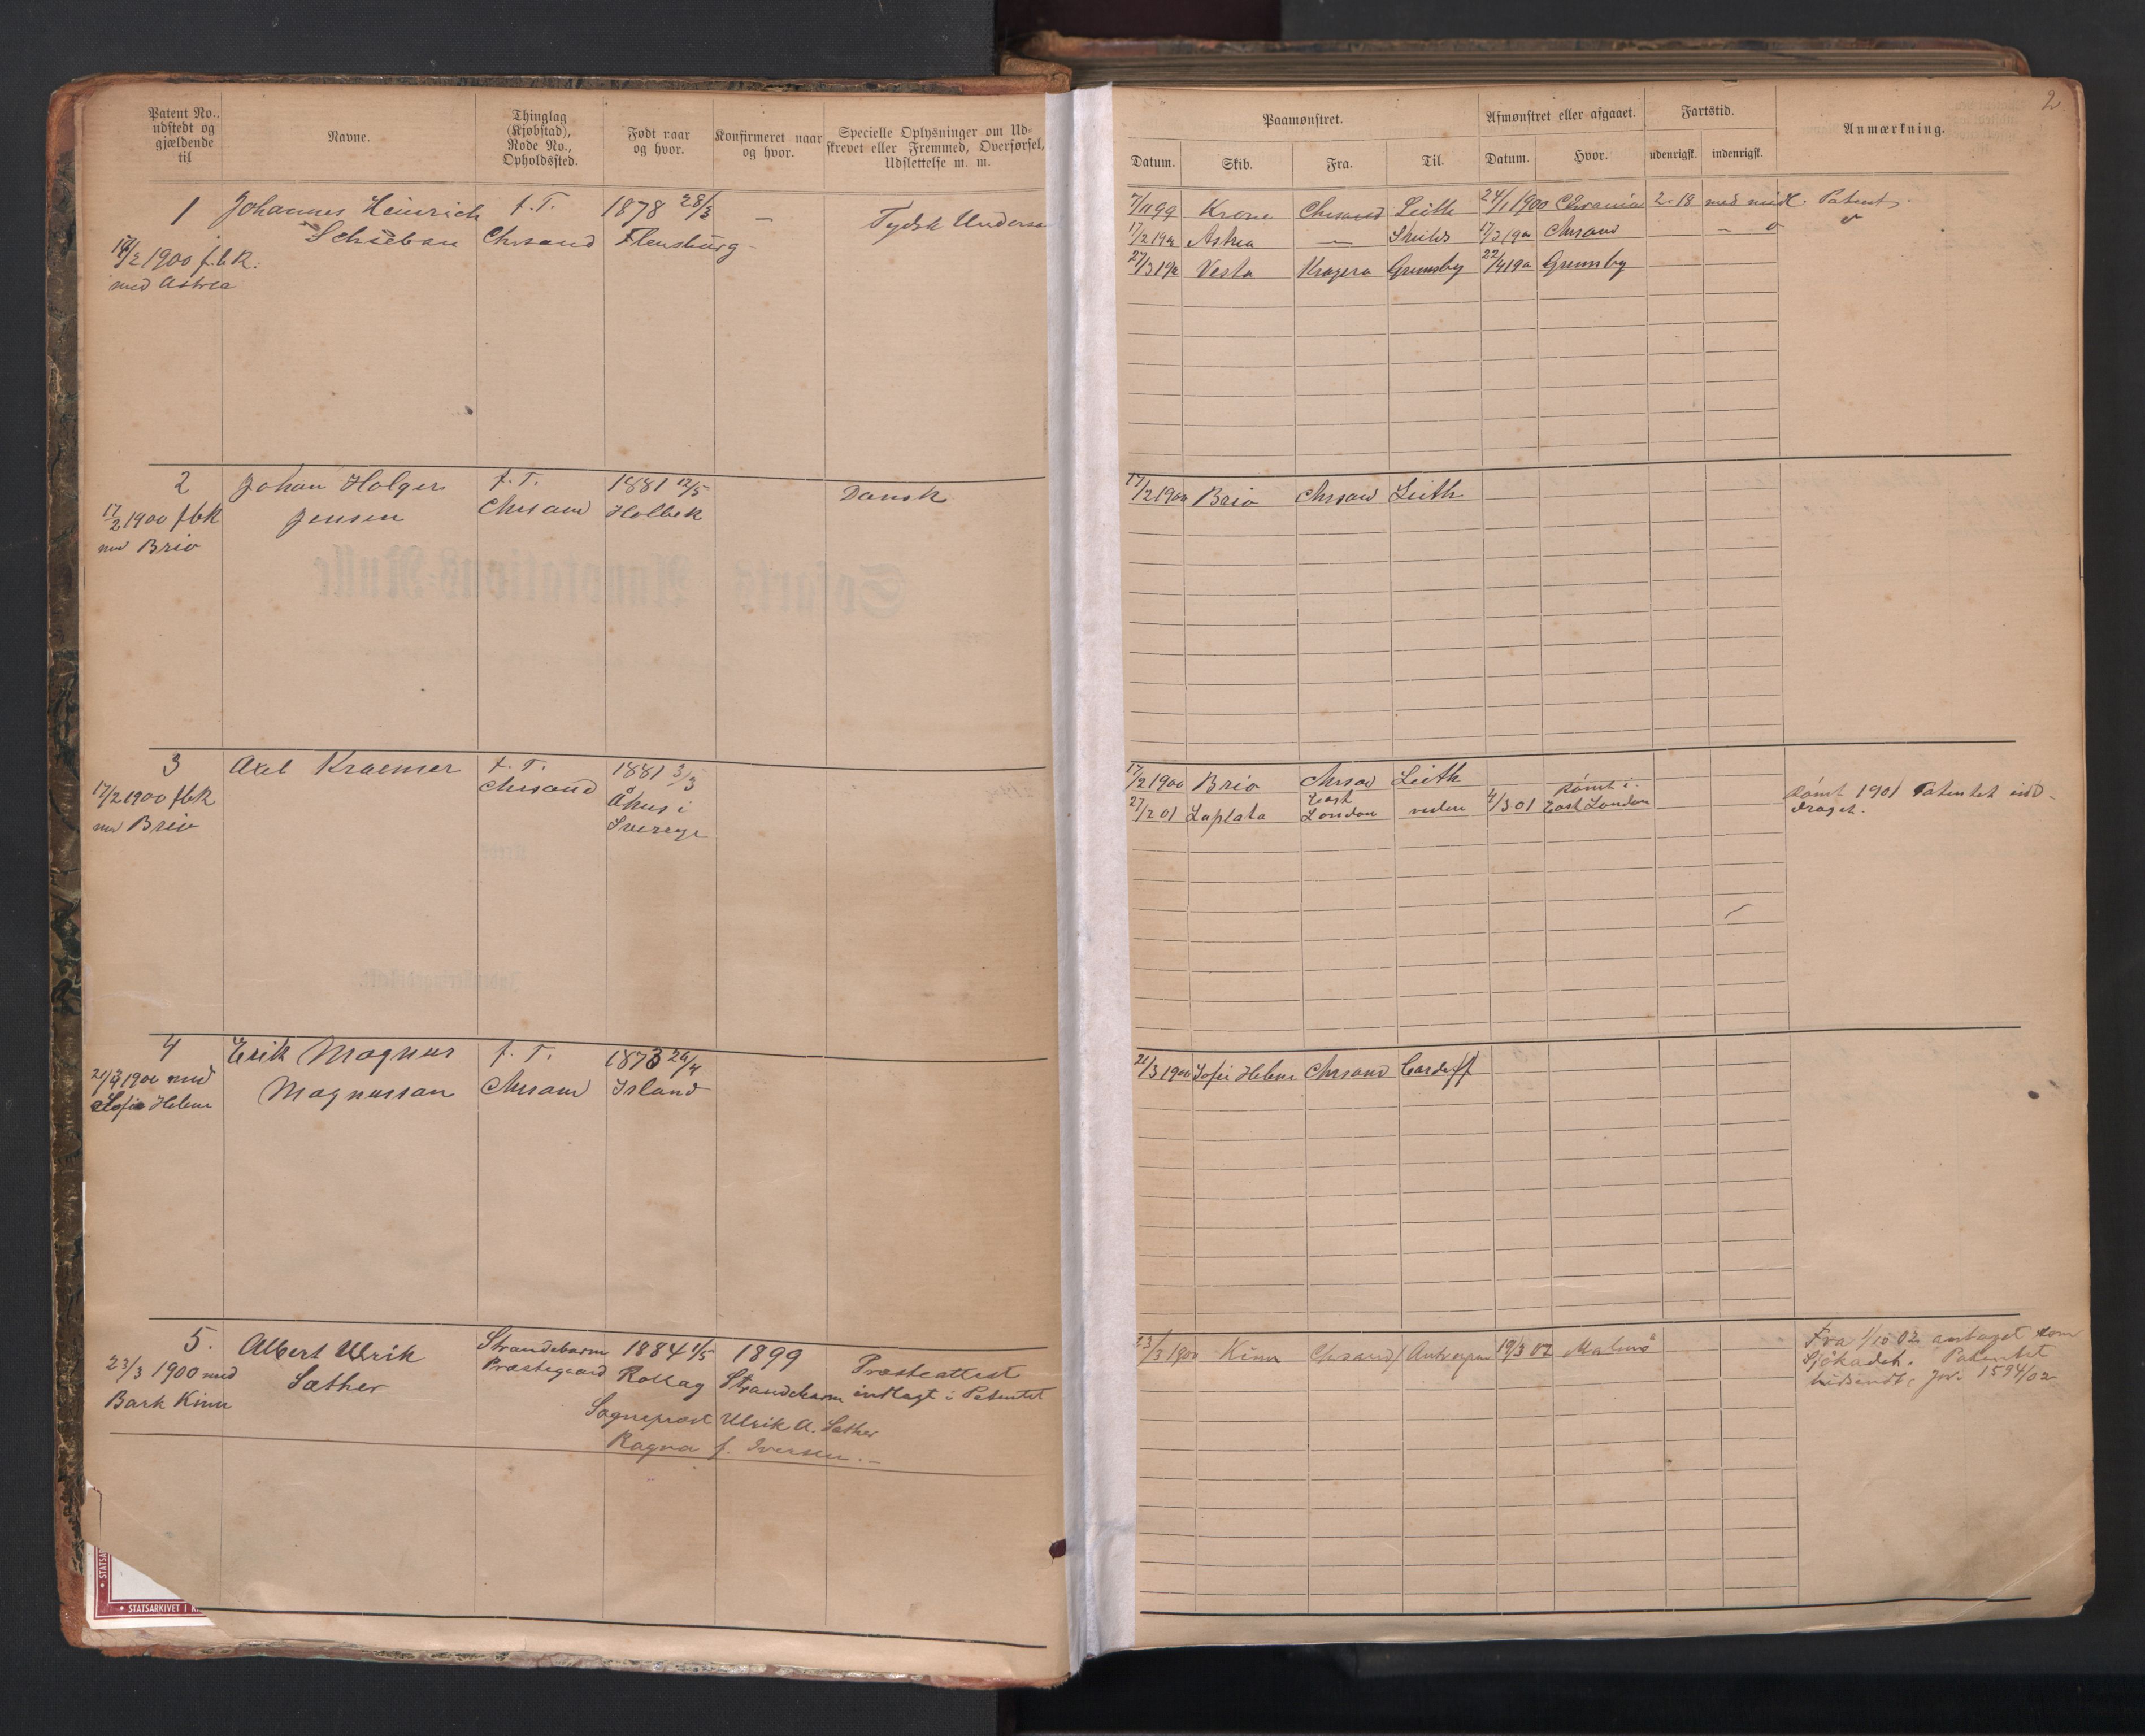 Patent No.
udstedt og
gjældende
til
Navne.
Thinglag
(Kjøbstad),
Rode No.,
Opholdssted.
Født naar
og hvor.
Konfirmeret naar
og hvor.
Specielle Oplysninger om Ud-
skrevet eller Fremmed, Overførsel,
Udslettelse m. m.
1
Johannes Heinrich
t. T.
1878 28/3
—
Tydsk Undersa
Schieban
Chrsand
Flensburg
17/2 1900 f.b.k.
med Astrea
2
Johan Holger
t. T.
1881 12/5
Dansk
17/2 1900 fbk
Jensen
Chrsand
Holbek
med Brio
3
Axel Kraemer
t. T.
1881 3/3
17/2 1900 fbk
Chrsand
Åhus i
med Brio
Sverige
4
Erik Magnus
t. T.
1873 29/4
21/3 1900 med
Magnussan
Chrsand
Island
Sofie Helene
5.
Albert Ulrik
Strandebarm
1884 1/5
1899
Præsteattest
23/3 1900 med
Sæther
Præstegaard
Rollag
Strandebarm
indlagt i Patentet
Bark Kinn
Sogneprest Ulrik A. Sæther
Ragna f. Iversen.—
2
Paamønstret.
Afmønstret eller afgaaet.
Fartstid.
Anmærkning.
Datum.
Skib.
Fra.
Til.
Datum.
Hvor.
udenrigsk.
indenrigsk.
7/11 99 Krone Chrsand Leith 24/1 1900 Chrania 2-18 med midl. Patent.
17/2 1900 Astrea — Shields 17/3 1900 Chrsand
27/3 1900 Vesta Kragerø Grimsby 22/4 1900 Grimsby
17/2 1900 Brio Chrsand Leith
17/2 1900 Brio Chrsand Leith
27/2 01 Laplata East London videre 4/3 01 Rømt i East London
Rømt 1901 Patentet ind-
draget.
21/3 1900 Sofie Helene Chrsand Cardiff
23/3 1900 Kinn Chrsand Antverpen 19/3 02 Malmø
Fra 1/10 02 antaget som
Sjökadet. Patentet
hidsendt, Jnr. 1594/02
STATSARKIVET I